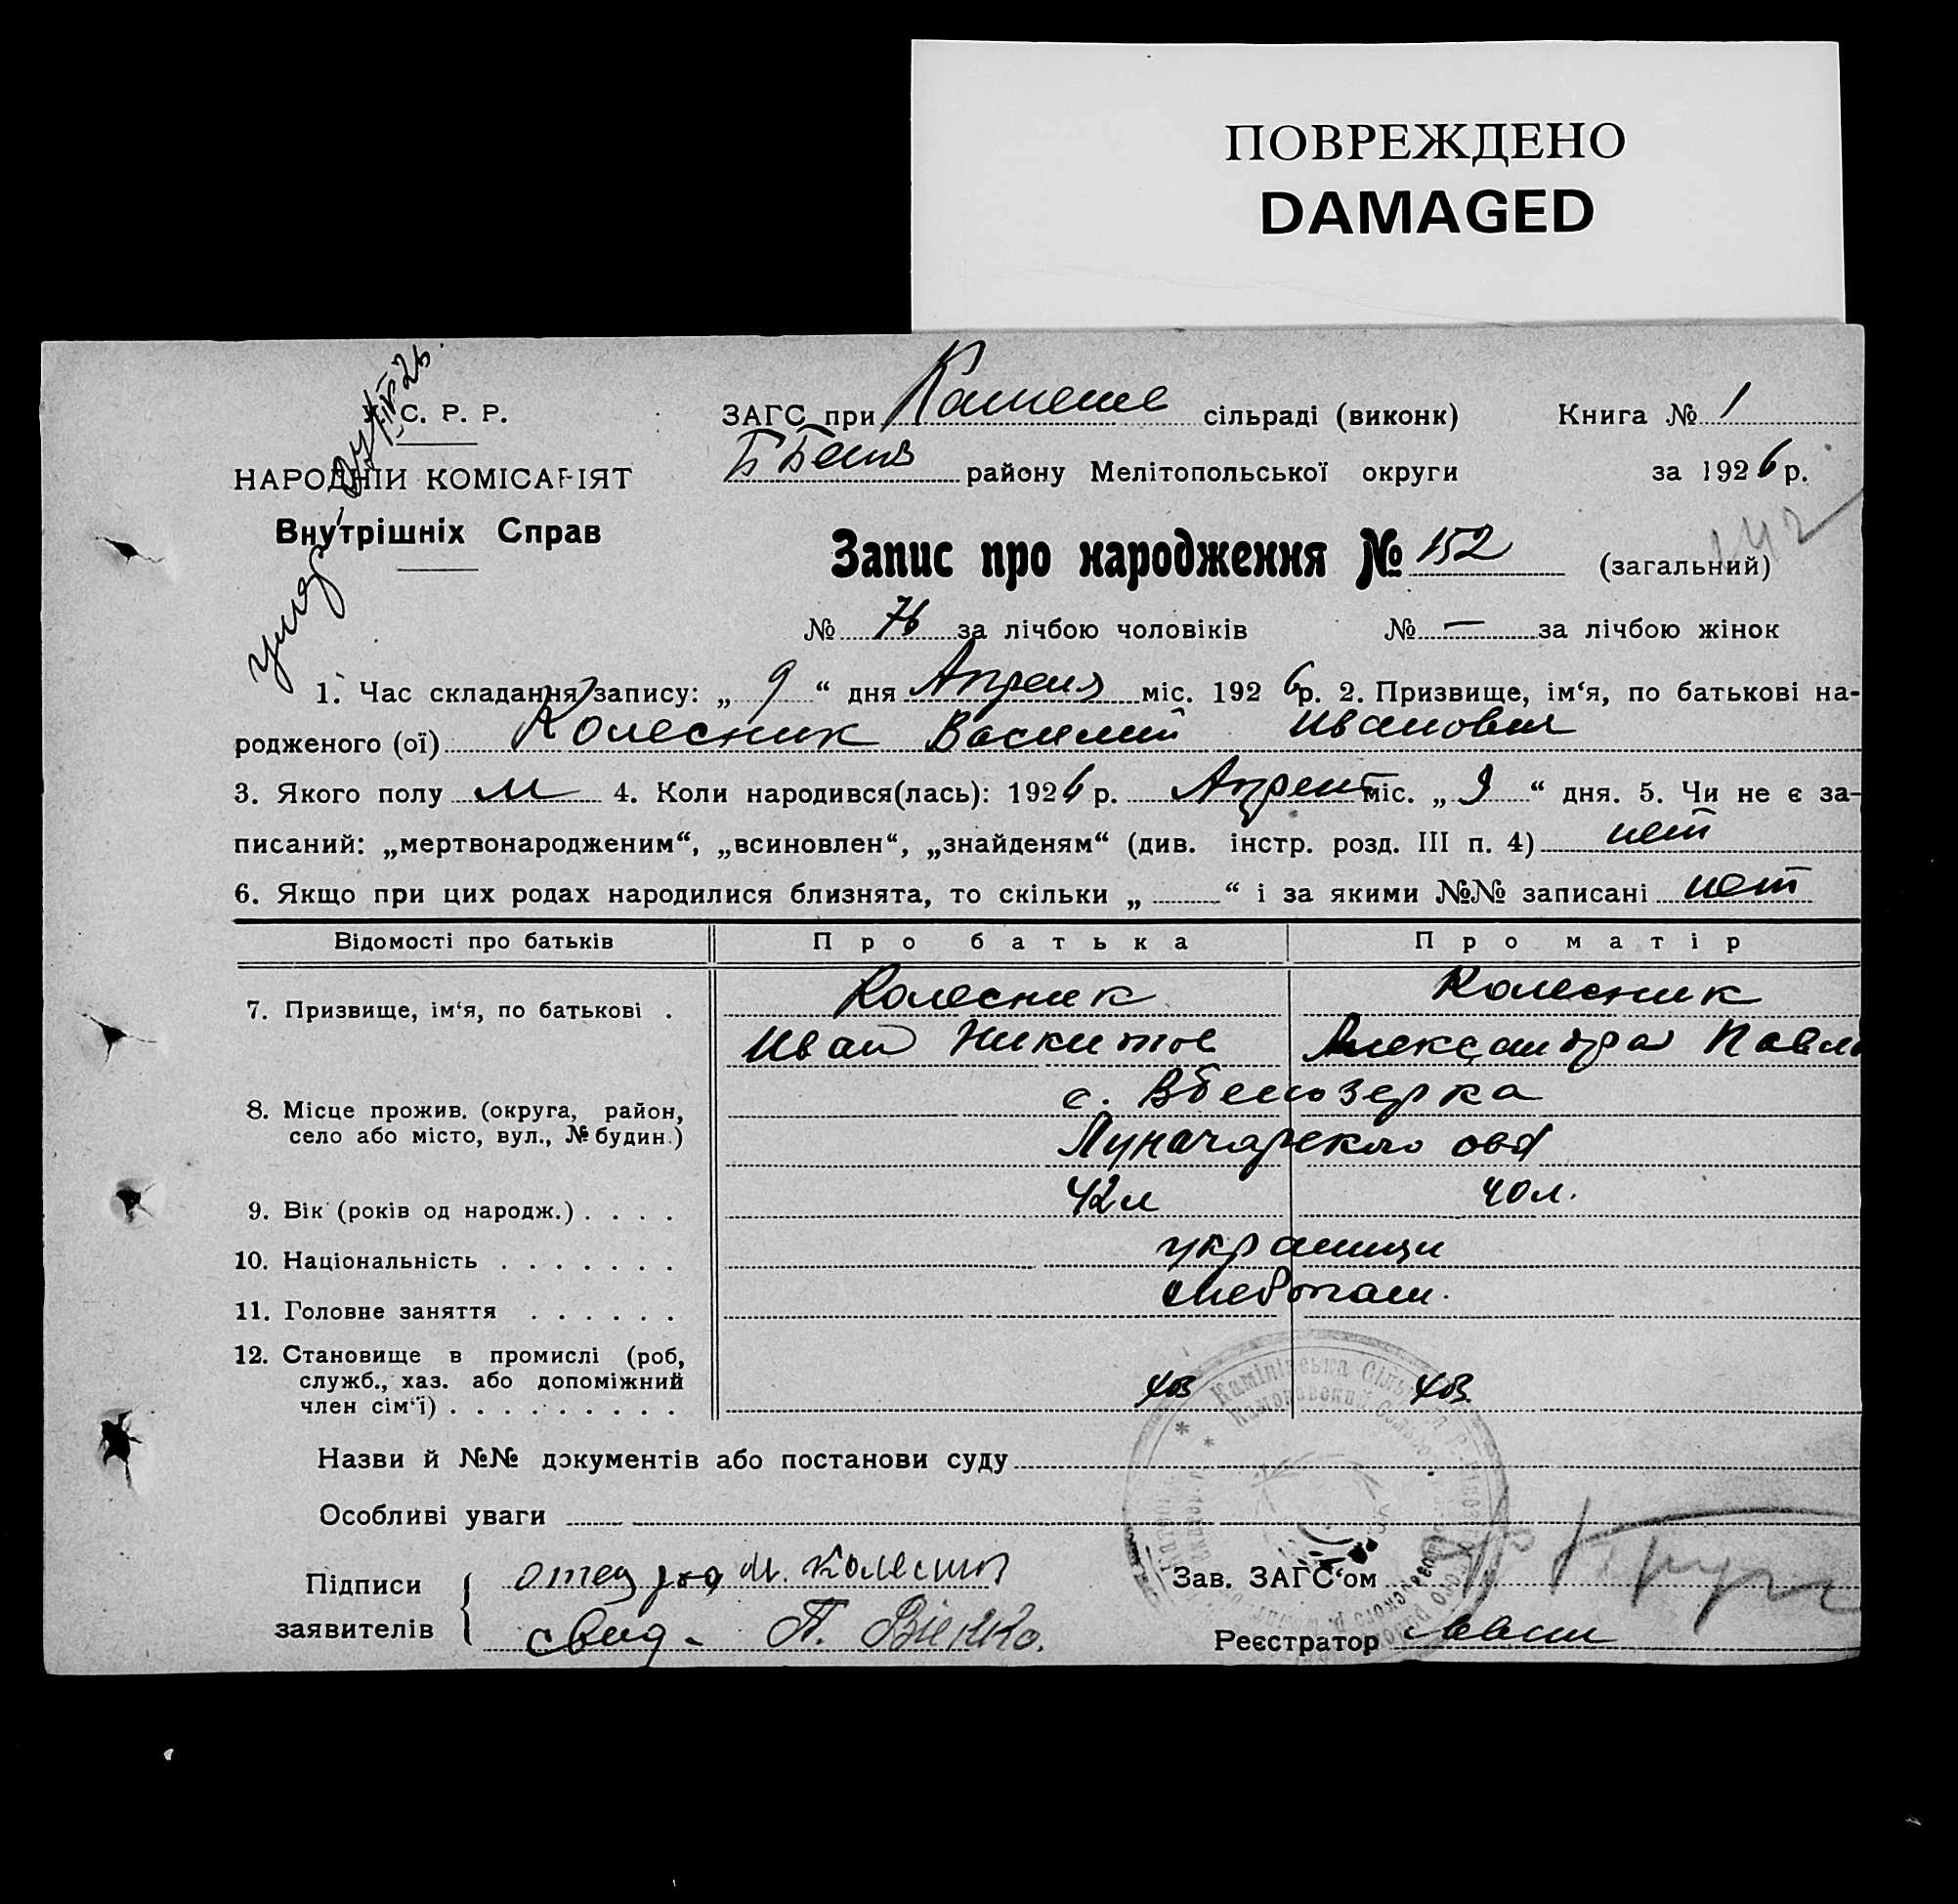 ПОВРЕЖДЕНО
DAMAGED
С. Р. Р.
НАРОДНІЙ КОМІСАРІЯТ
Внутрішніх Справ
ЗАГС при сільраді (виконк) Книга № 1
району Мелітопольської округи за 1926 р.
Запис про народження № 152 (загальний)
142
№ 76 за лічбою чоловіків № — за лічбою жінок
1. Час складання запису: „ 9 “ дня Апреля міс. 1926 р. 2. Призвище, ім‘я, по батькові на-
родженого (ої) Колесник Василий Иванович
3. Якого полу м 4. Коли народився(лась): 1926 р. Апрель міс. „ 9 “ дня. 5. Чи не є за-
писаний: „мертвонародженим“, „всиновлен“, „знайденям“ (див. інстр. розд. III п. 4) нет
6. Якщо при цих родах народилися близнята, то скільки „ “ і за якими №№ записані нет
Відомості про батьків Про батька Про матір
7. Призвище, ім‘я, по батькові . Колесник Колесник
Иван Никитов Александра Павло
8. Місце прожив. (округа, район, село або місто, вул., № будин.) с. Вбелозерка
Луначарского
9. Вік (років од народж.) . . . . 42 л 40 л.
10. Національність . . . . . . . украинцы
11. Головне заняття . . . . . . хлебопаш.
12. Становище в промислі (роб,
служб., хаз. або допоміжний
член сім‘ї) . . . . . . . . .
Назви й №№ документів або постанови суду
Особливі уваги
Підписи заявителів отец Колесник
свид.
Зав. ЗАГС‘ом
Реєстратор